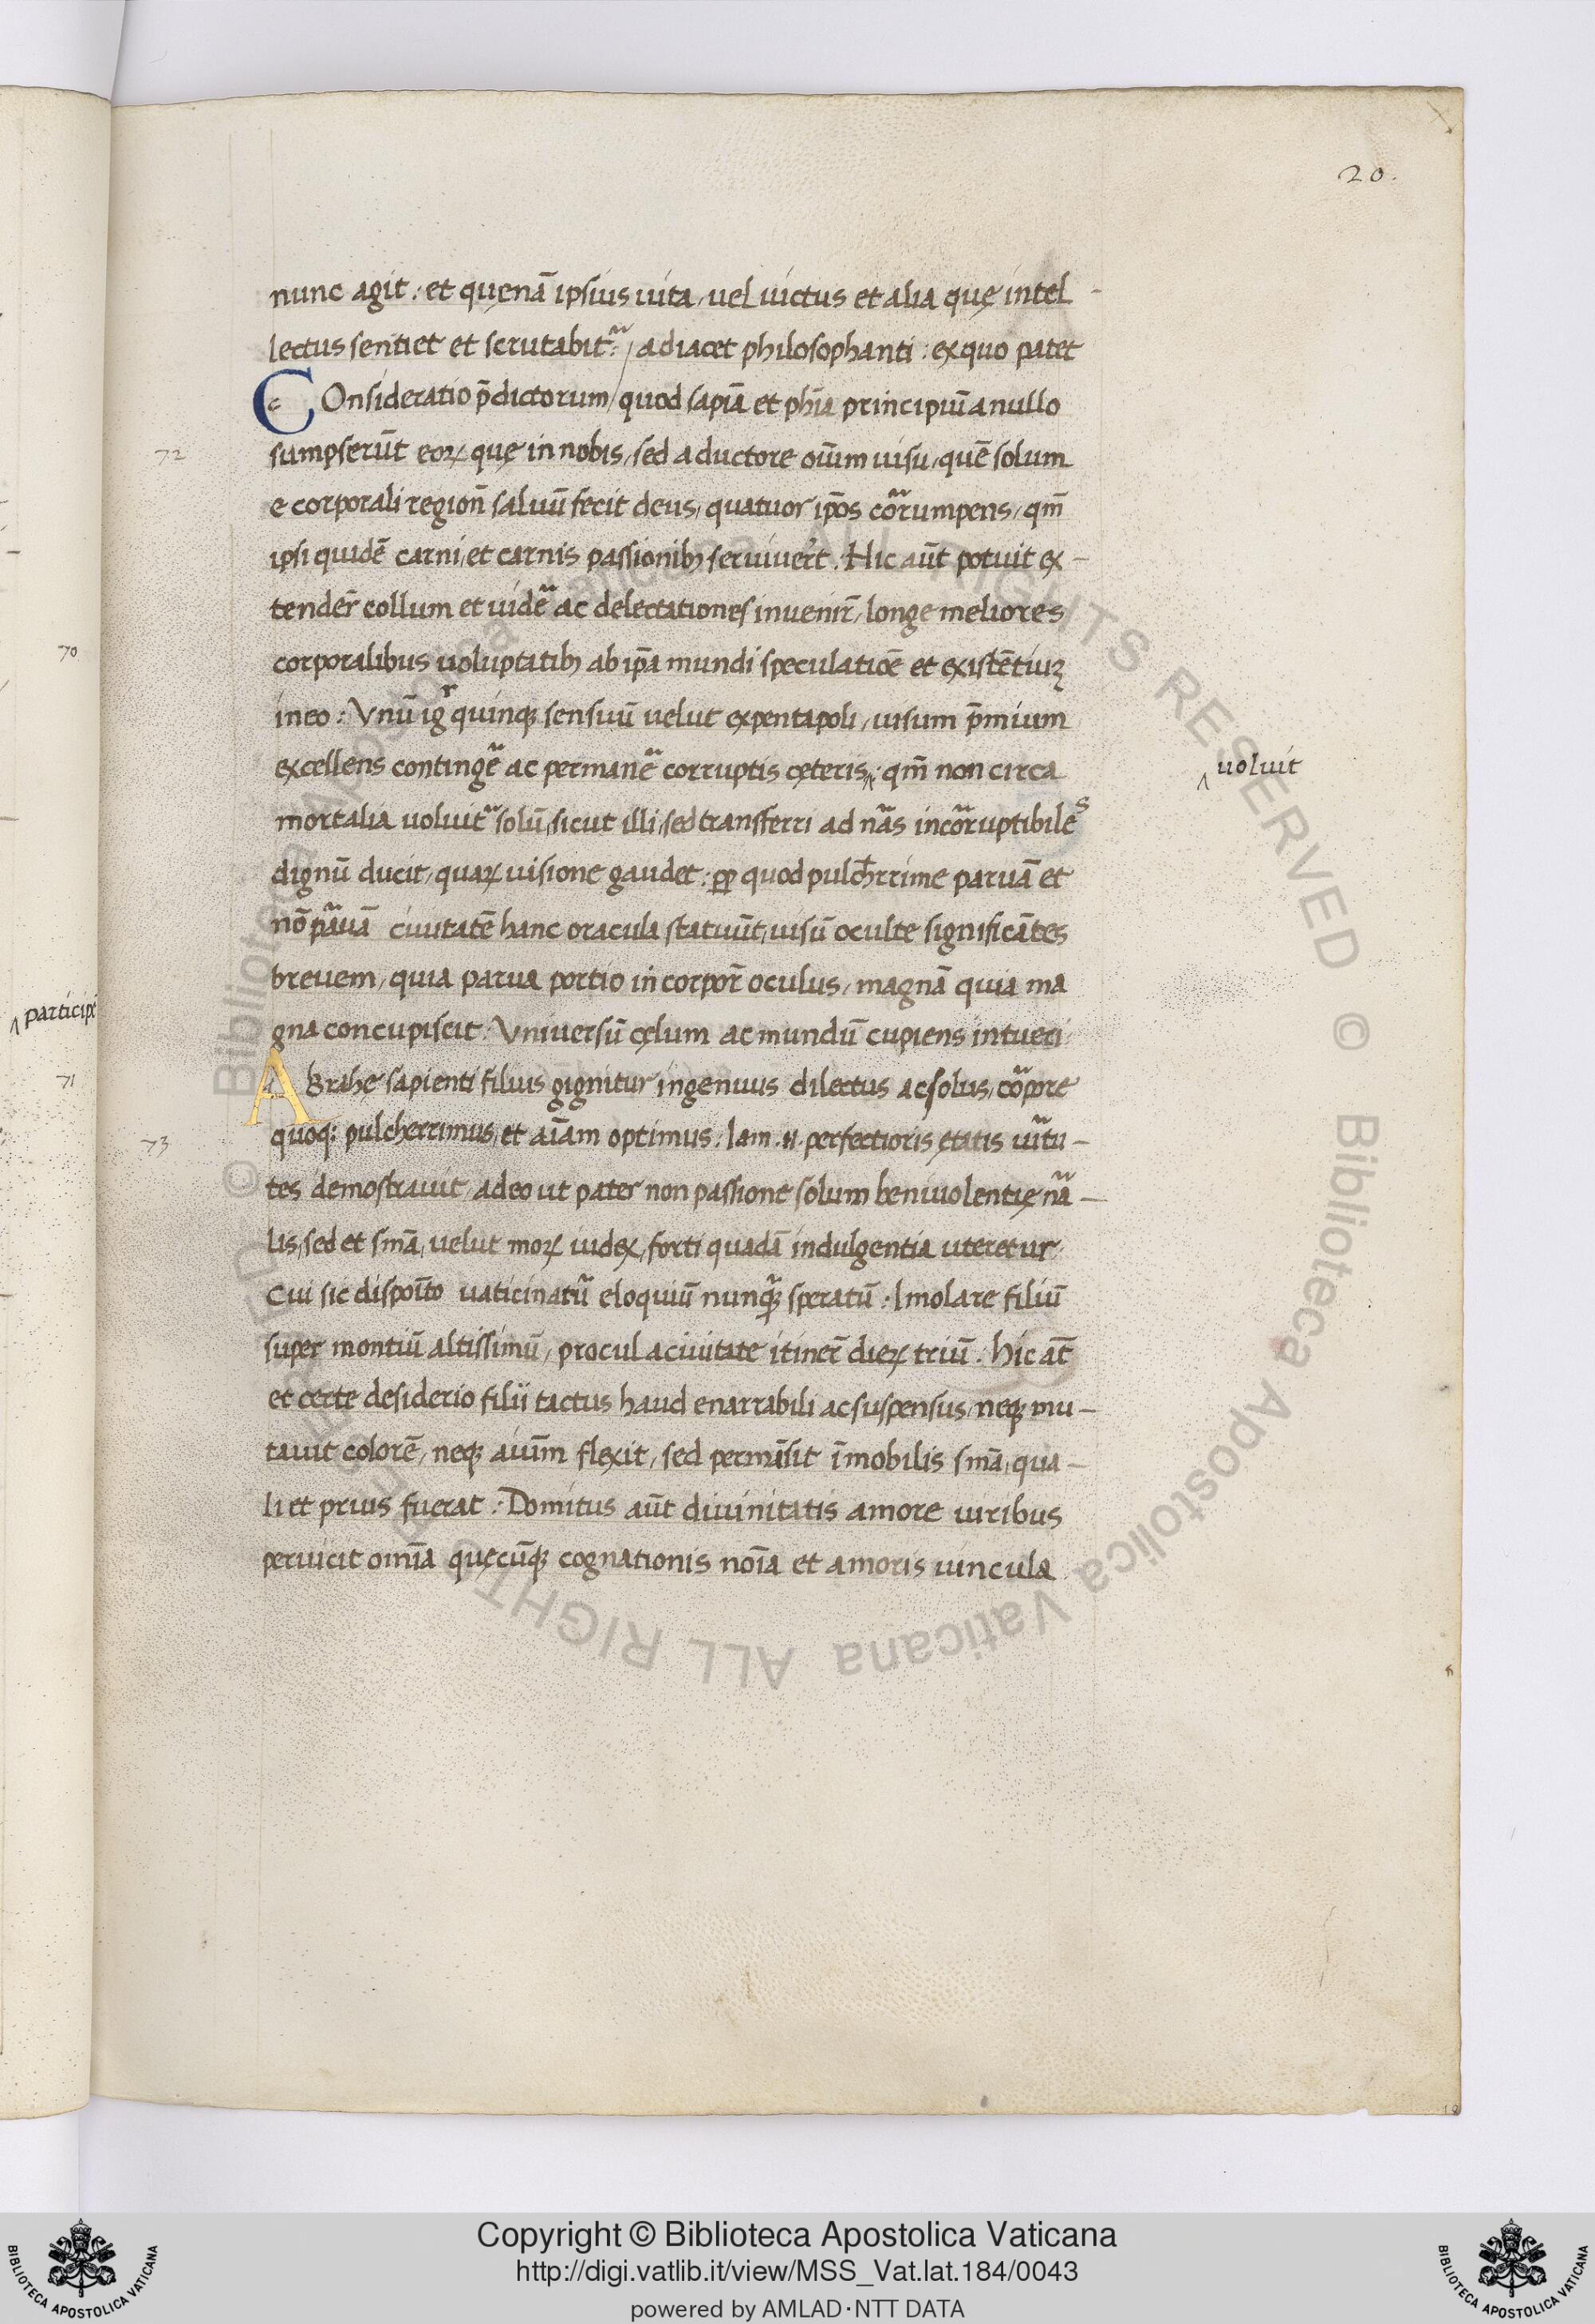 20.
nunc agit: et quęnā ipsius uita, uel uictus et alia quę intel-
lectus sentiet et scrutabit᷑: / adiacet philosophanti: ex quo patet
COnsideratio p̄dictorum / quod sapīa et phīa principiū a nullo
72
sumpserūt eoꝝ quę in nobis, sed a ductore oīum uisu, quē solum
e corporali region̄ saluū fecit deus, quatuor ip̄os cor᷑rumpens, qm̄
ipsi quidē carni, et carnis passionibꝫ seruiuer̄t. Hic aūt potuit ex-
tender̄ collum et uide᷑ ac delectationes inuenir̄, longe meliores
corporalibus uoluptatibꝫ ab ip̄a mundi speculatiōe et existētiuꝫ
in eo: Vnū igr̄ quinqꝫ sensuū uelut ex pentapoli, uisum p̄mium
excellens continge᷑ ac permane᷑ corruptis cęteris,‸: qm̄ non circa
‸ uoluit
mortalia uoluit᷑ solū, sicut illi, sed transferri ad nāas incor᷑ruptibiles
dignū ducit, quaꝝ uisione gaudet: ꝓp quod pulch̄rrime paruā et
nō pa᷑uā ciuitatē hanc oracula statuūt, uisū oculte significātes
breuem, quia parua portio in corpor̄ oculus, magnā quia ma
gna concupiscit: Vniuersū cęlum ac mundū cupiens intueri
ABrahe sapienti filius gignitur ingenuus dilectus ac solus, co᷑pore
73
quoqꝫ pulcherrimus, et aīam optimus. Iam .n. perfectioris ętatis ui᷑tu-
tes demostrauit, adeo ut pater non passione solum beniuolentię na᷑-
lis, sed et sn̄īa, uelut moꝝ iudex, forti quadā indulgentia uteretur
Cui sic dispoīto uaticinatu᷑ eloquiū nunqꝫ speratū: Imolare filiū
super montiū altissimū, procul a ciuitate itiner̄ dieꝝ triū. Hic at̄
et certe desiderio filii tactus haud enarrabili ac suspensus, neqꝫ mu-
tauit colorē, neqꝫ aīum flexit, sed permāsit īmobilis sn̄īa, qua-
li et prius fuerat: Domitus aūt diuinitatis amore uiribus
peruicit omīa quęcūqꝫ cognationis noīa et amoris uincula
70
‸ participe
71
Copyright © Biblioteca Apostolica Vaticana
http://digi.vatlib.it/view/MSS_Vat.lat.184/0043
powered by AMLAD·NTT DATA